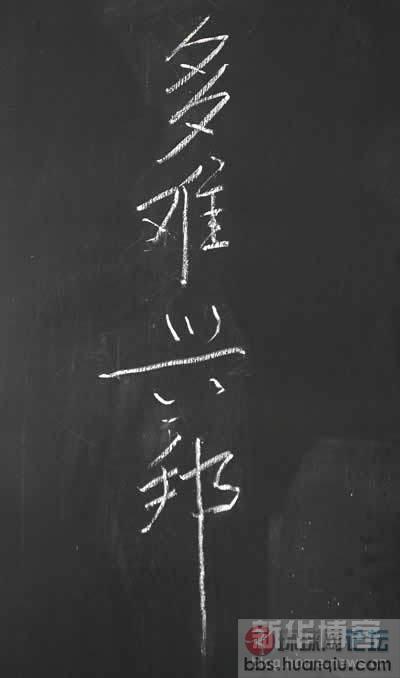 多难兴邦
新华博客
环球网论坛
bbs.huanqiu.com